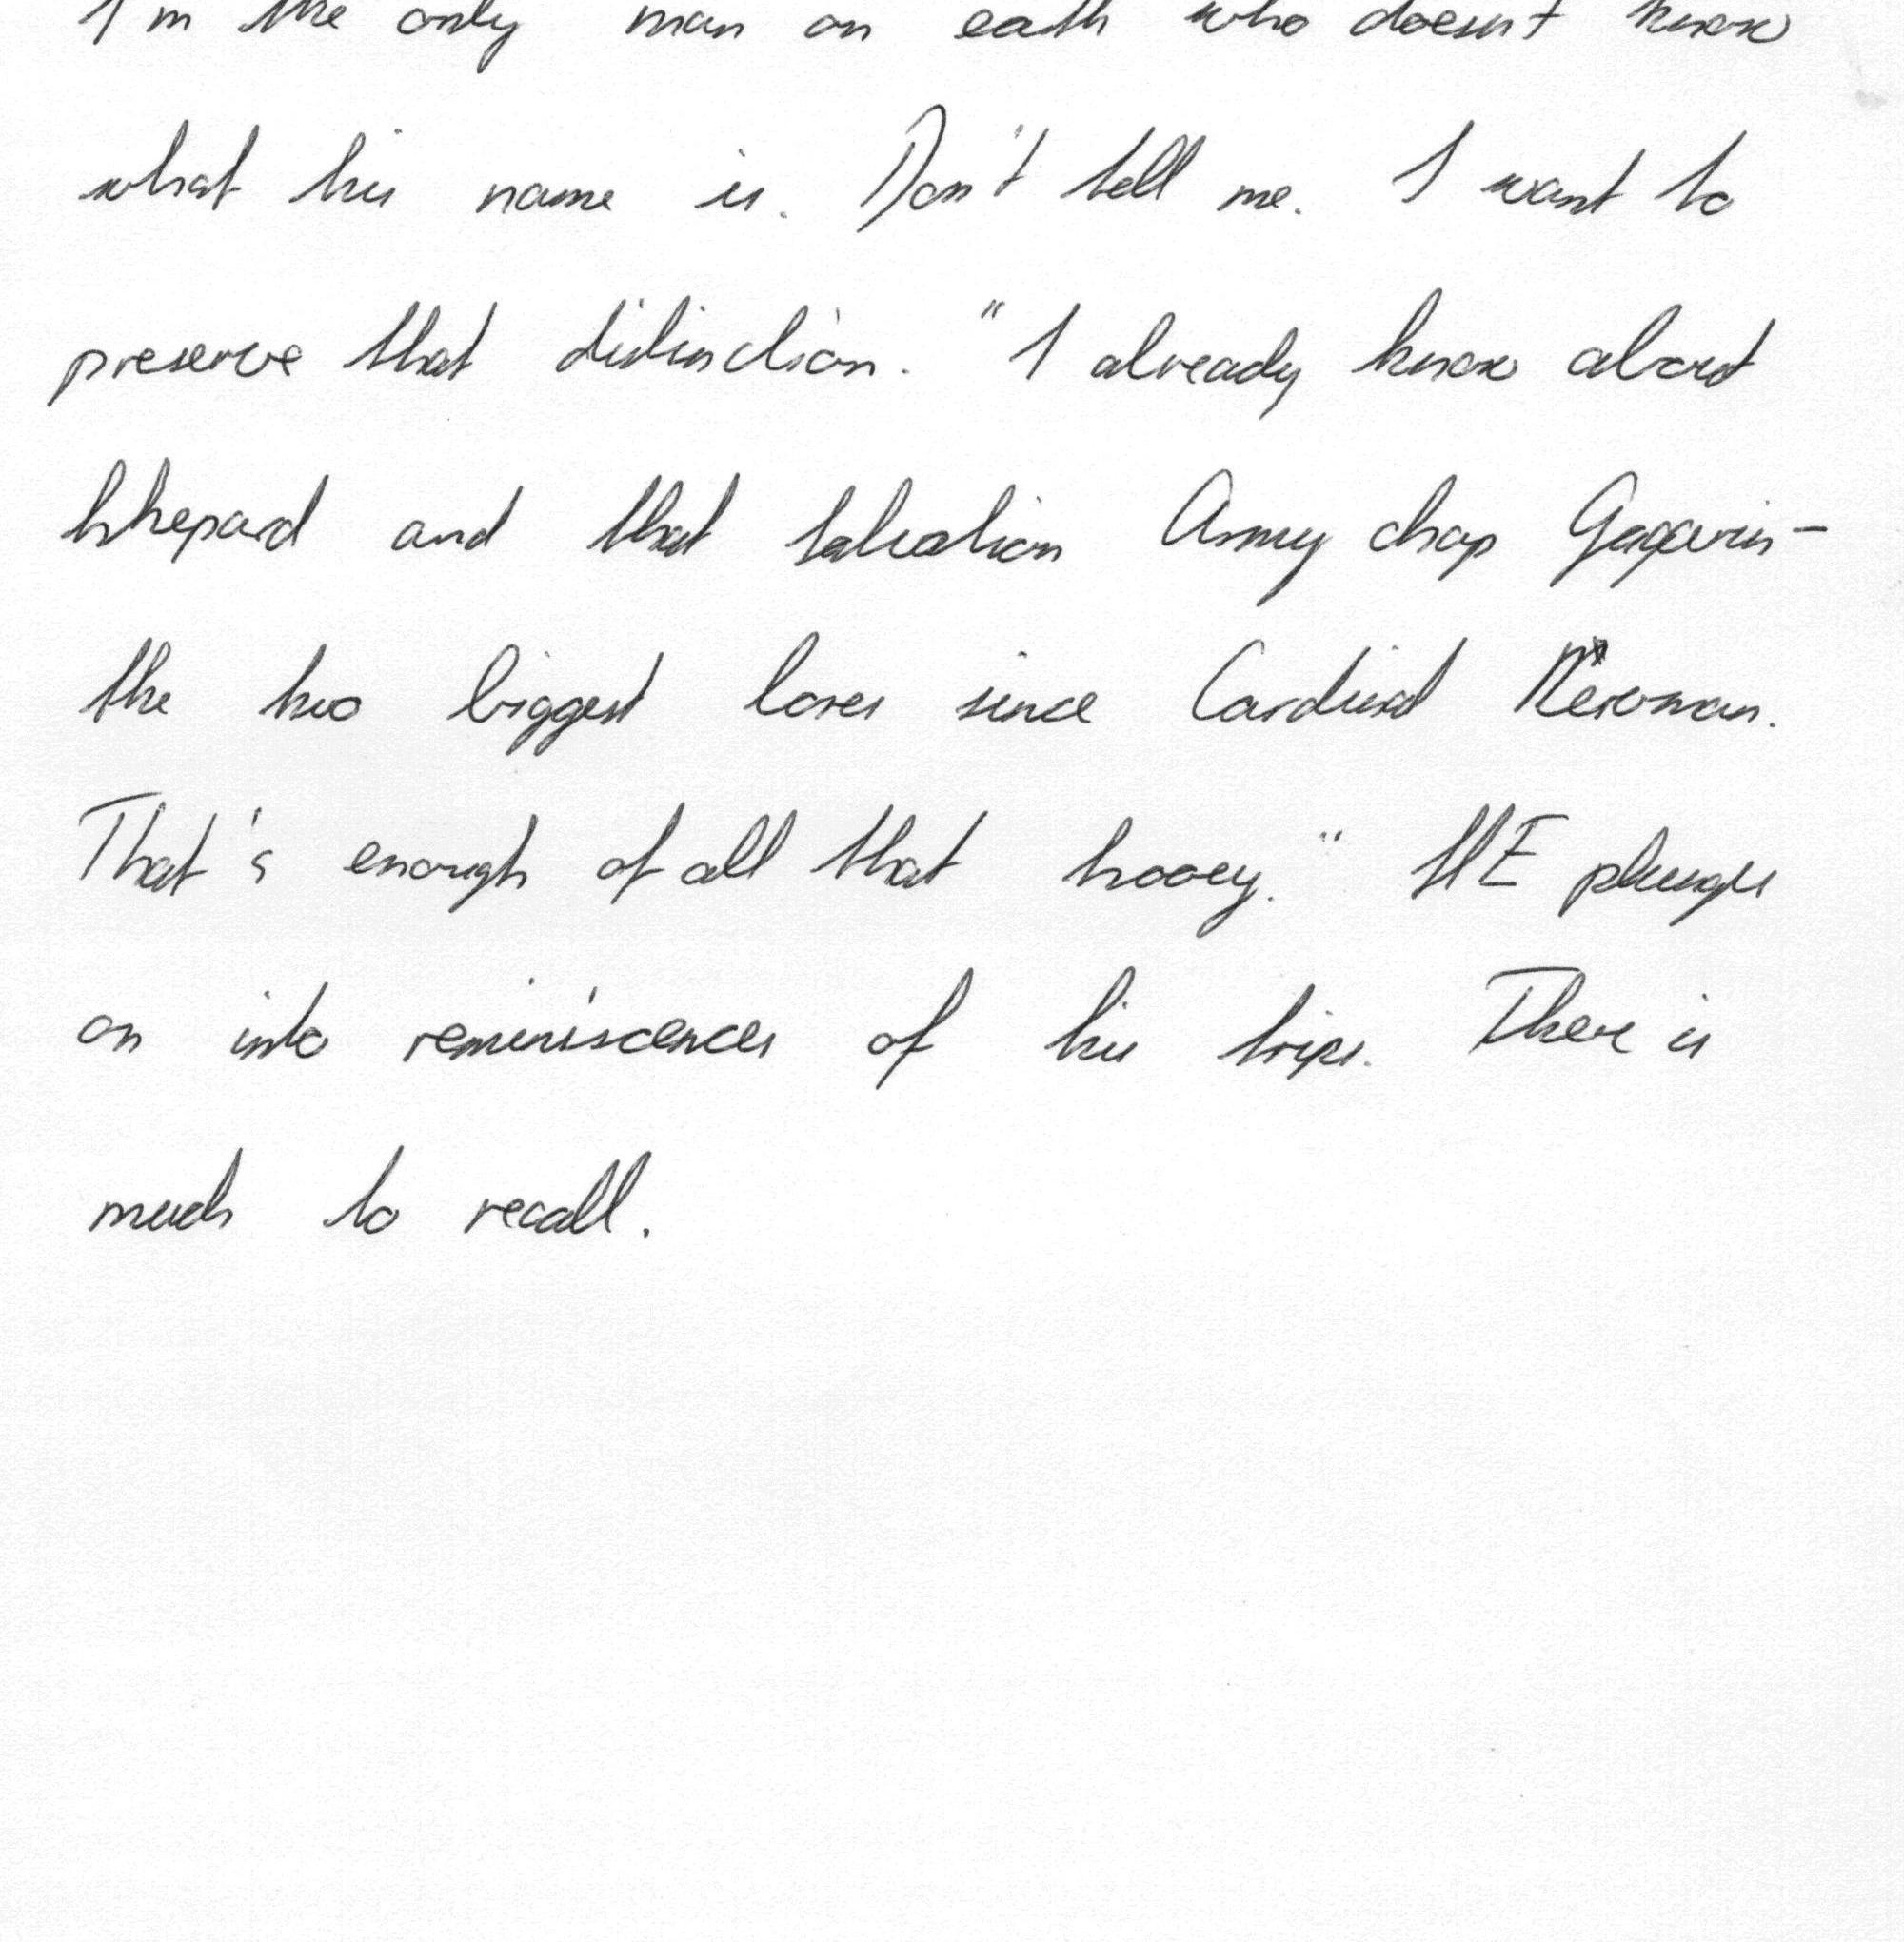 I'm the only man on eath who doesn't know
what his name is. Don't tell me. I want to
preserve that distinction. "I already know about
Shepard and that Salvation Army chap Gagarin-
the two biggest bores since Cardinal Newman.
That's enough of all that hooey." HE plunges
on into reminiscences of his trips. There is
much to recall.